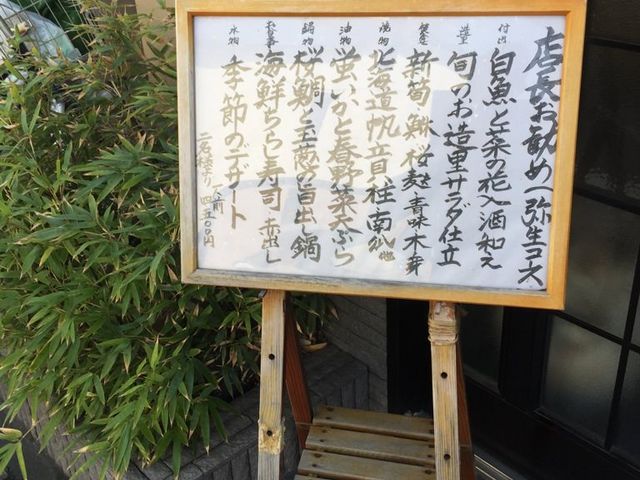 店長お勧め 弥生コース
付出
白魚と菜の花入酒和え
造里
旬のお造里サラダ仕立
新筍 鰆 桜麩 青味 木の芽
焼物
北海道帆立貝柱南瓜他
油物
蛍いかと春野菜天ぷら
鍋物
桜鯛と玉葱の旨出し鍋
お食事
海鮮ちらし寿司 赤出し
水物
季節のデザート
二名様より 一人前 四五〇〇円